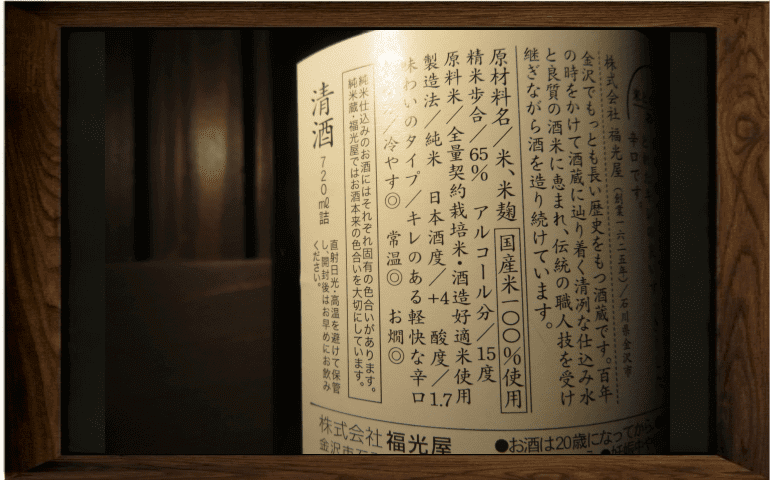 辛口です。
株式会社 福光屋 (創業一六二五年)/石川県金沢市
金沢でもっとも長い歴史をもつ酒蔵です。百年
の時をかけて酒蔵に辿り着く清冽な仕込み水
と良質の酒米に恵まれ、伝統の職人技を受け
継ぎながら酒を造り続けています。
原材料名/米、米麹 国産米一〇〇%使用
精米歩合/65% アルコール分/15度
原料米/全量契約栽培米・酒造好適米使用
製造法/純米 日本酒度/+4 酸度/1.7
味わいのタイプ/キレのある軽快な辛口
/冷やす◎ 常温◎ お燗◎
純米仕込みのお酒にはそれぞれ固有の色合いがあります。
純米蔵・福光屋ではお酒本来の色合いを大切にしています。
清酒 720㎖詰
直射日光・高温を避けて保管
し、開封後はお早めにお飲み
ください。
株式会社 福光屋
金沢市石
●お酒は20歳になってから